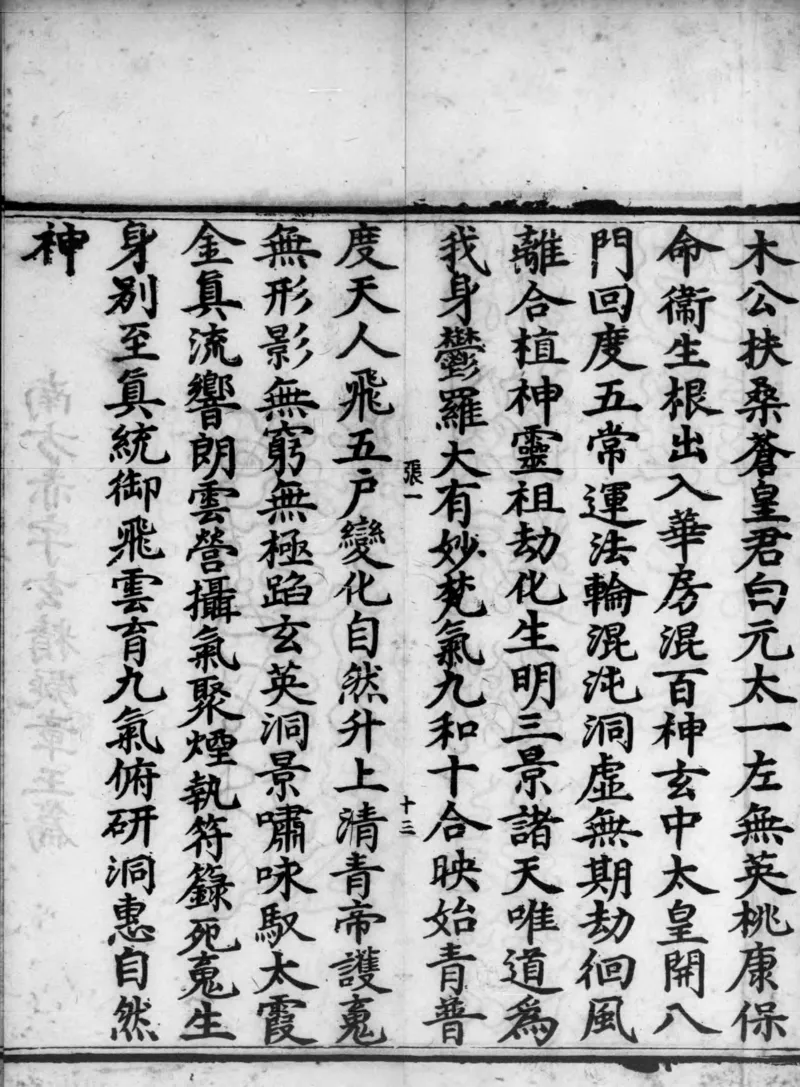 木公扶桑蒼皇君白元太一左無英桃康保
命衞生根出入華房混百神玄中太皇開八
門回度五常運法輪混沌洞虛無期劫徊風
離合植神靈祖劫化生明三景諸天唯道爲
我身鬱羅大有妙梵氣九和十合映始青普
張一
十三
度天人飛五戶變化自然升上清青帝護䰟
無形影無窮無極蹈玄英洞景嘯咏馭太霞
金眞流響朗雲營攝氣聚煙執符籙死䰟生
身别至眞統御飛雲育九氣俯研洞惠自然
神